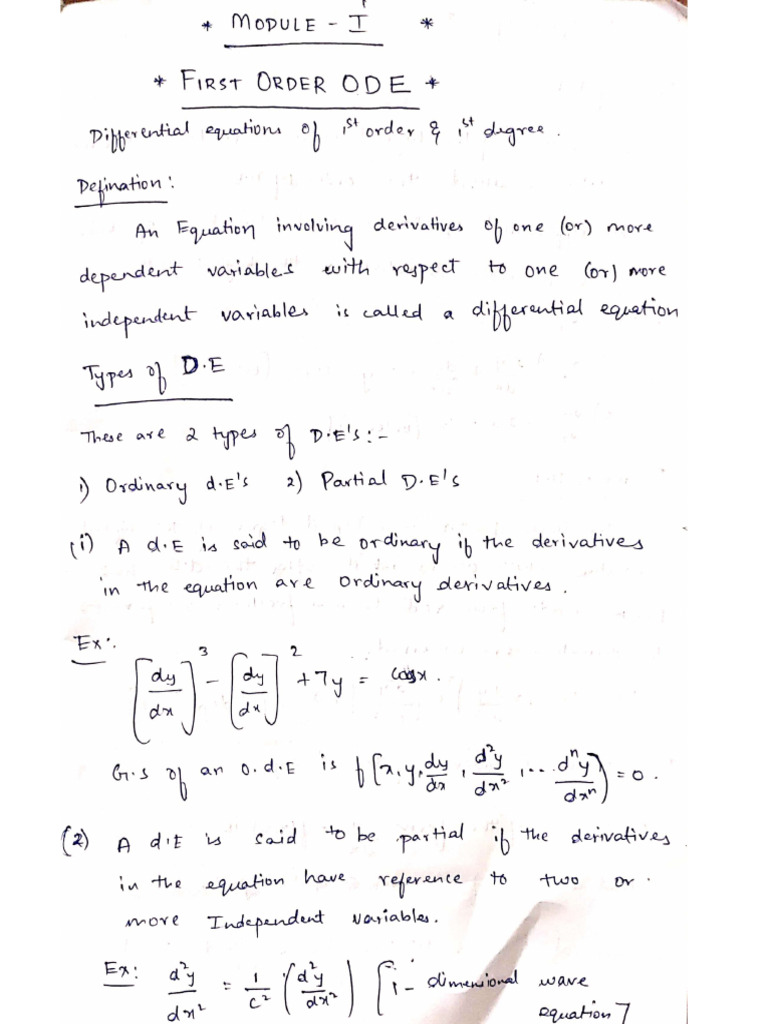 * MODULE - I *
* FIRST ORDER ODE *
Differential equations of 1st order & 1st degree.
Defination:
An Equation involving derivatives of one (or) more
dependent variables with respect to one (or) more
independent variables is called a differential equation
Types of D.E
These are 2 types of D.E's:-
1) Ordinary d.E's 2) Partial D.E's
(i) A d.E is said to be ordinary if the derivatives
in the equation are ordinary derivatives.
Ex:
[dy/dx]³ - [dy/dx]² + 7y = cosx.
G.S of an O.d.E is f[x, y, dy/dx, d²y/dx², ... dⁿy/dxⁿ) = 0.
(2) A d.E is said to be partial if the derivatives
in the equation have reference to two or
more Independent variables.
Ex: d²y/dx² = 1/c² (d²y/dx²) [1- dimensional wave
equation]